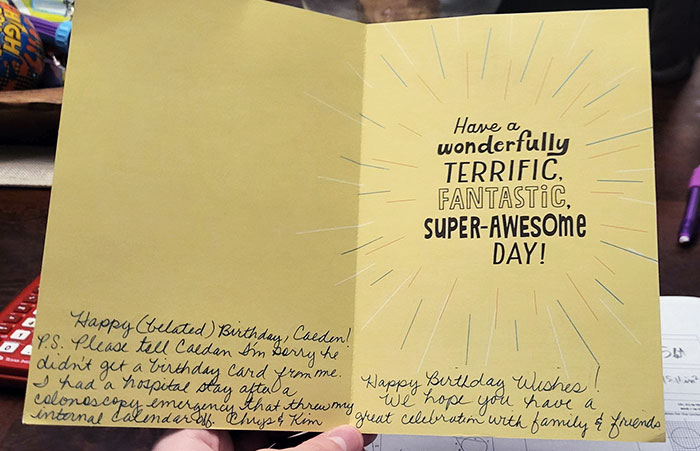 Happy (belated) Birthday, Caeden!
P.S. Please tell Caedan I'm sorry he
didn't get a birthday card from me.
I had a hospital stay after a
colonoscopy emergency that threw my
internal calendar off. Chrys & Kim
Have a
wonderfully
TERRIFIC,
FANTASTIC,
SUPER-AWESOME
DAY!
Happy Birthday Wishes!
We hope you have a
great celebration with family & friends